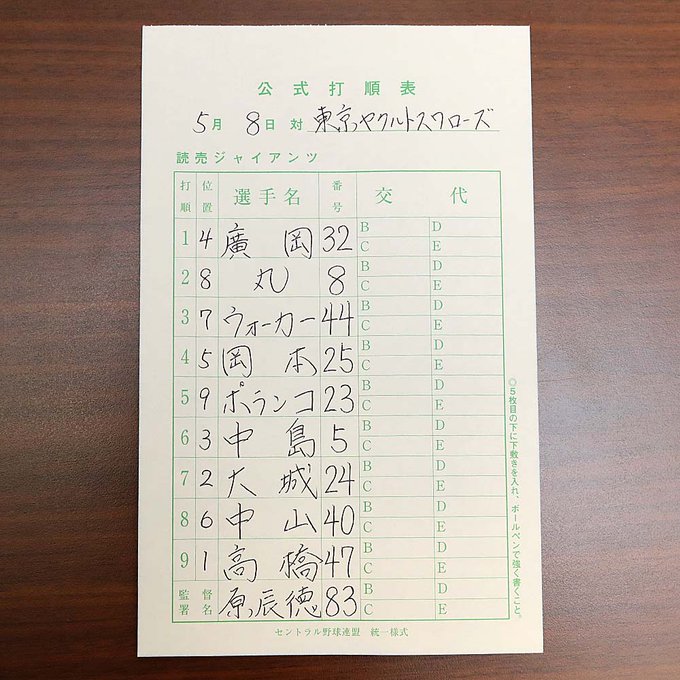 公式打順表
5月 8日 対 東京ヤクルトスワローズ
読売ジャイアンツ
打順 位置 選手名 番号 交代
1 4 廣岡 32 B D C E
2 8 丸 8 B D C E
3 7 ウォーカー 44 B D C E
4 5 岡本 25 B D C E
5 9 ポランコ 23 B D C E
6 3 中島 5 B D C E
7 2 大城 24 B D C E
8 6 中山 40 B D C E
9 1 高橋 47 B D C E
監督署名 原辰徳 83 B D C E
セントラル野球連盟 統一様式
◎5枚目の下に下敷きを入れ、ボールペンで強く書くこと。